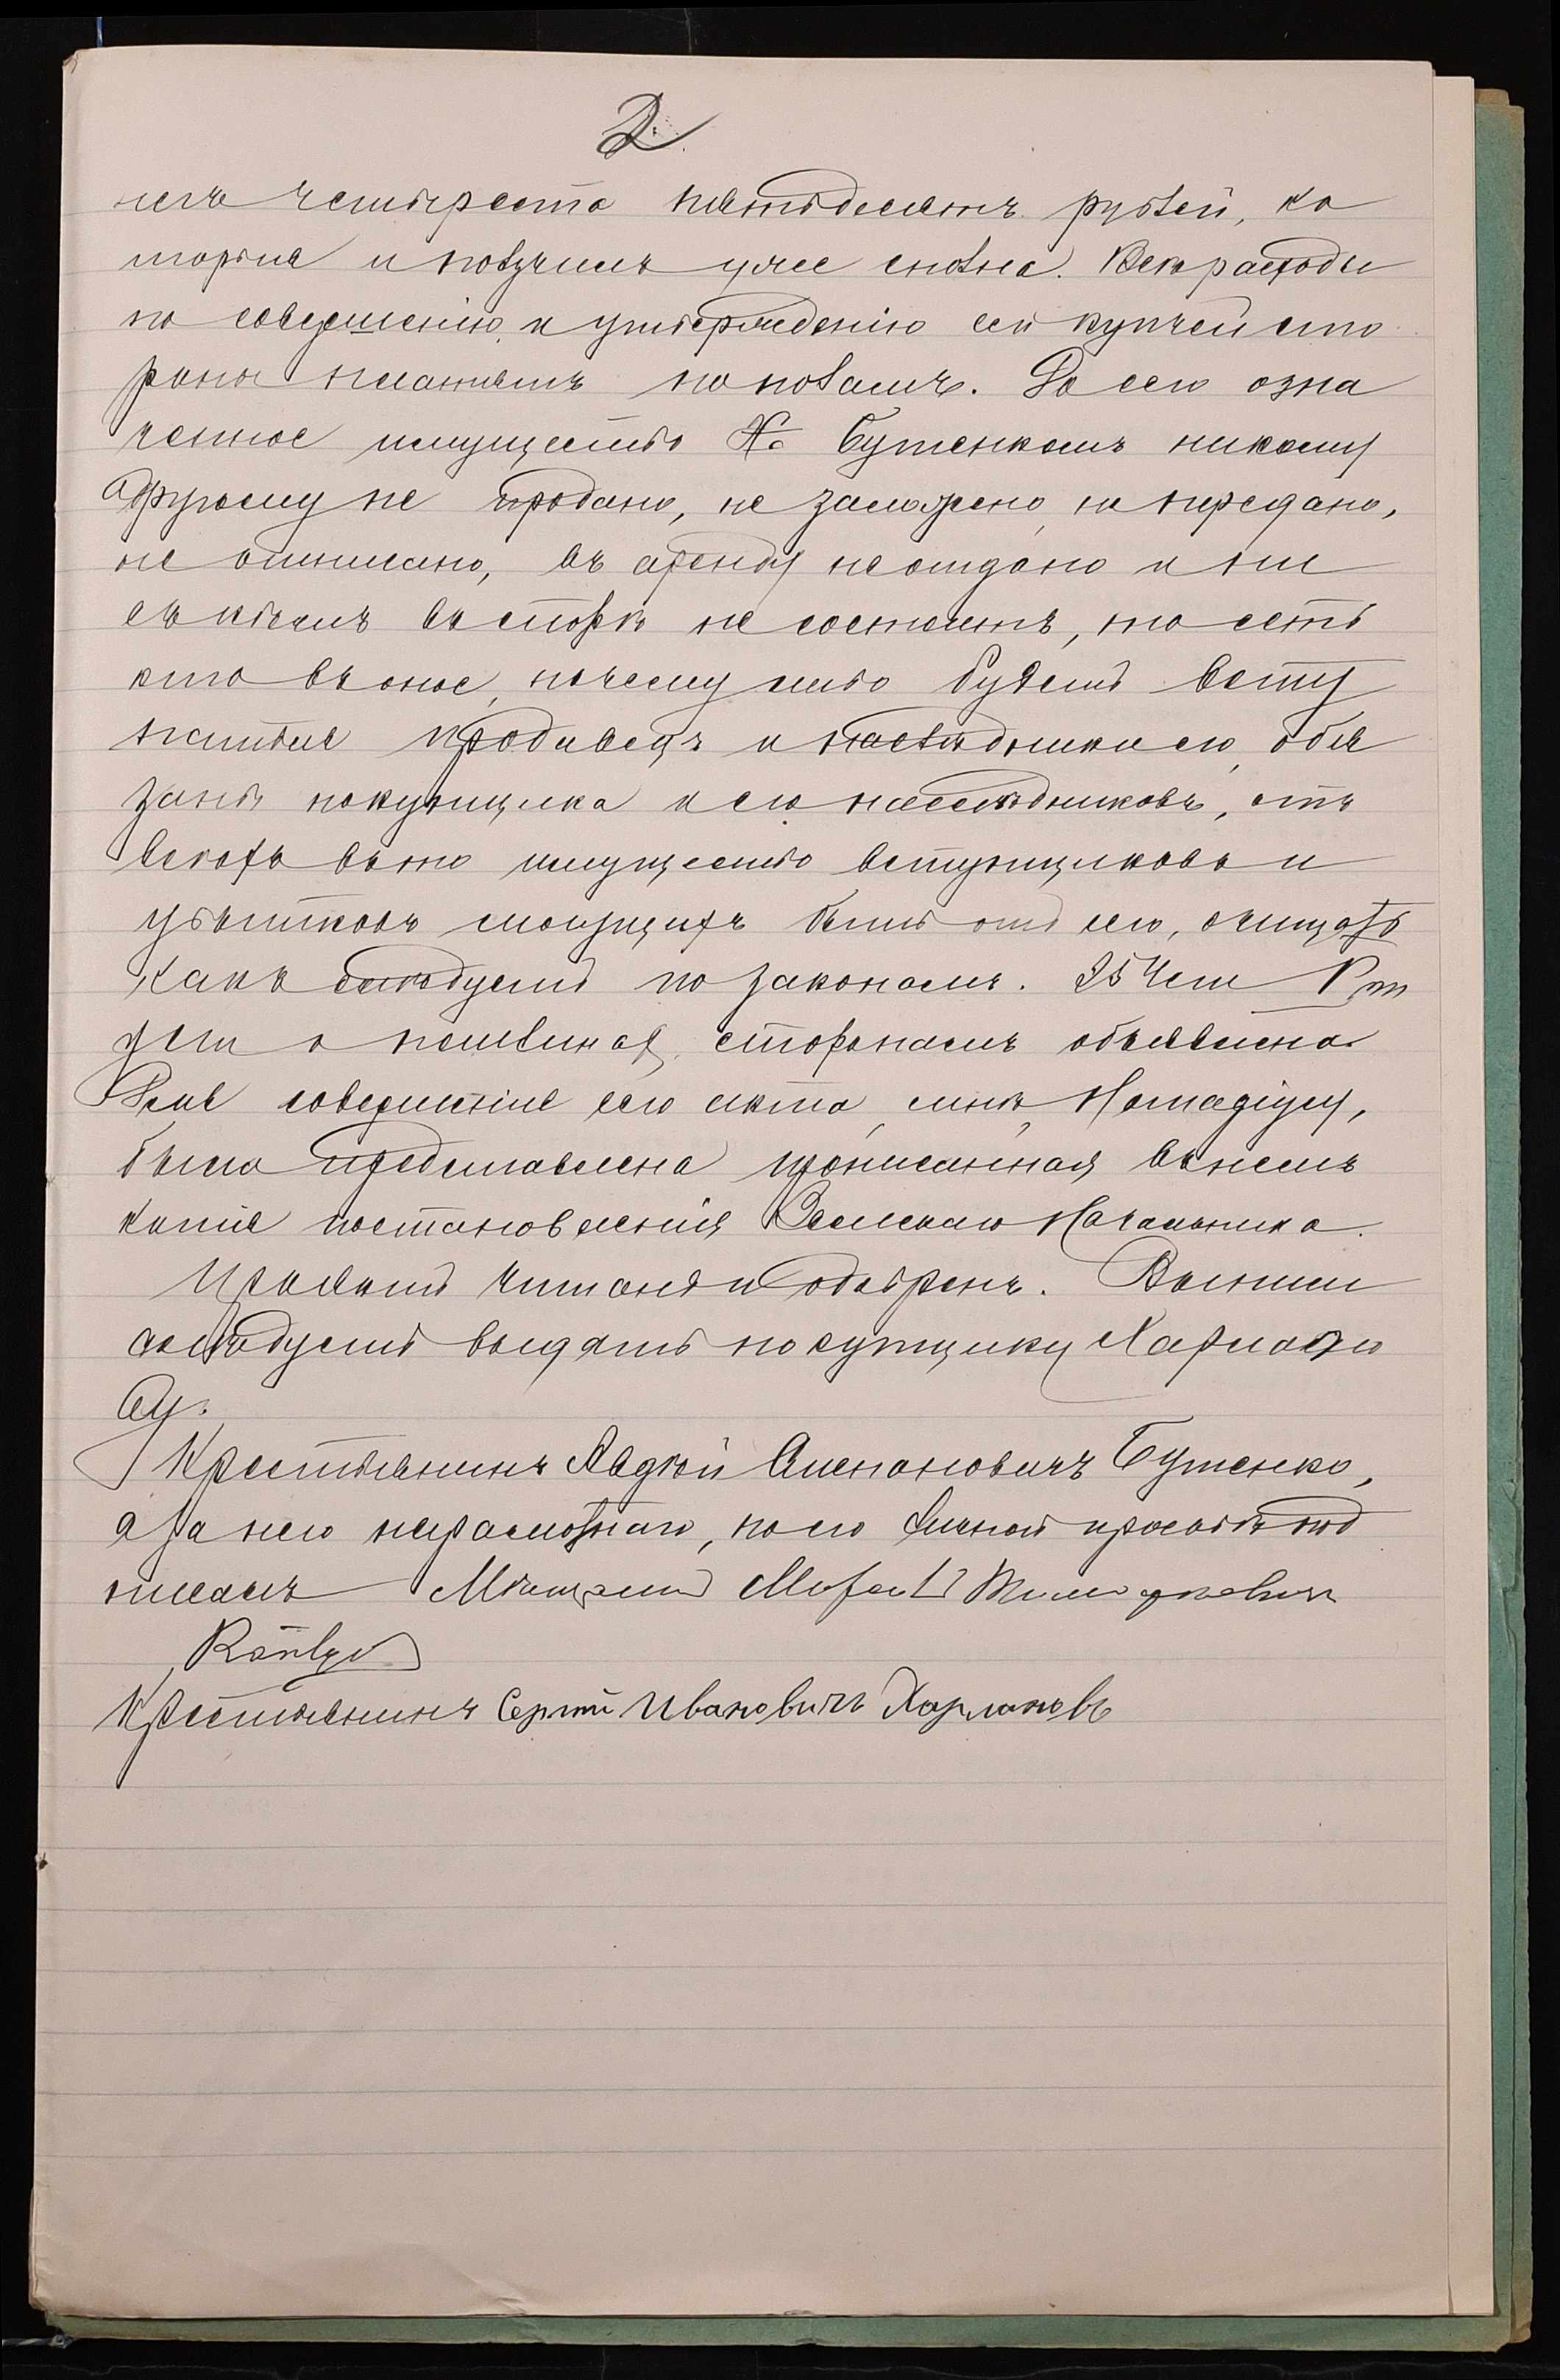 2.
лей четыреста пятьдесятъ рублей, ко
торые и получилъ уже сполна. Всѣ расходы
по совершенію и утвержденію сей купчей сто
роны платятъ пополамъ. До сего озна
ченное имущество Бутенкомъ никому
другому не продано, не заложено, не передано,
не описано, въ аренду не отдано и ни
съ кѣмъ въ спорѣ не состоитъ, но есть
кто въ оное, почему либо будетъ всту
паться продавецъ и наслѣдники его, обя
заны покупщика и его наслѣдниковъ, отъ
всѣхъ въ то имущество вступщиковъ и
убытковъ могущихъ быть отъ сего, очищать
какъ слѣдуетъ по законамъ. 25 Чет
уст о пошлинах, сторонамъ объявлена.
Для совершенія сего акта, мнѣ, Нотаріусу,
была представлена прописанная въ немъ
копія постановленія Земскаго Начальника.
Проэктъ читанъ и одобренъ. Выпись
слѣдуетъ выдать покупщику Харлано
ву.
Крестьянинъ Авдѣй Антоновичъ Бутенко,
а за него неграмотнаго, по его личной просьбѣ под
писалъ Мѣщанинъ
Крестьянинъ Сергѣй Ивановичъ Харлановъ